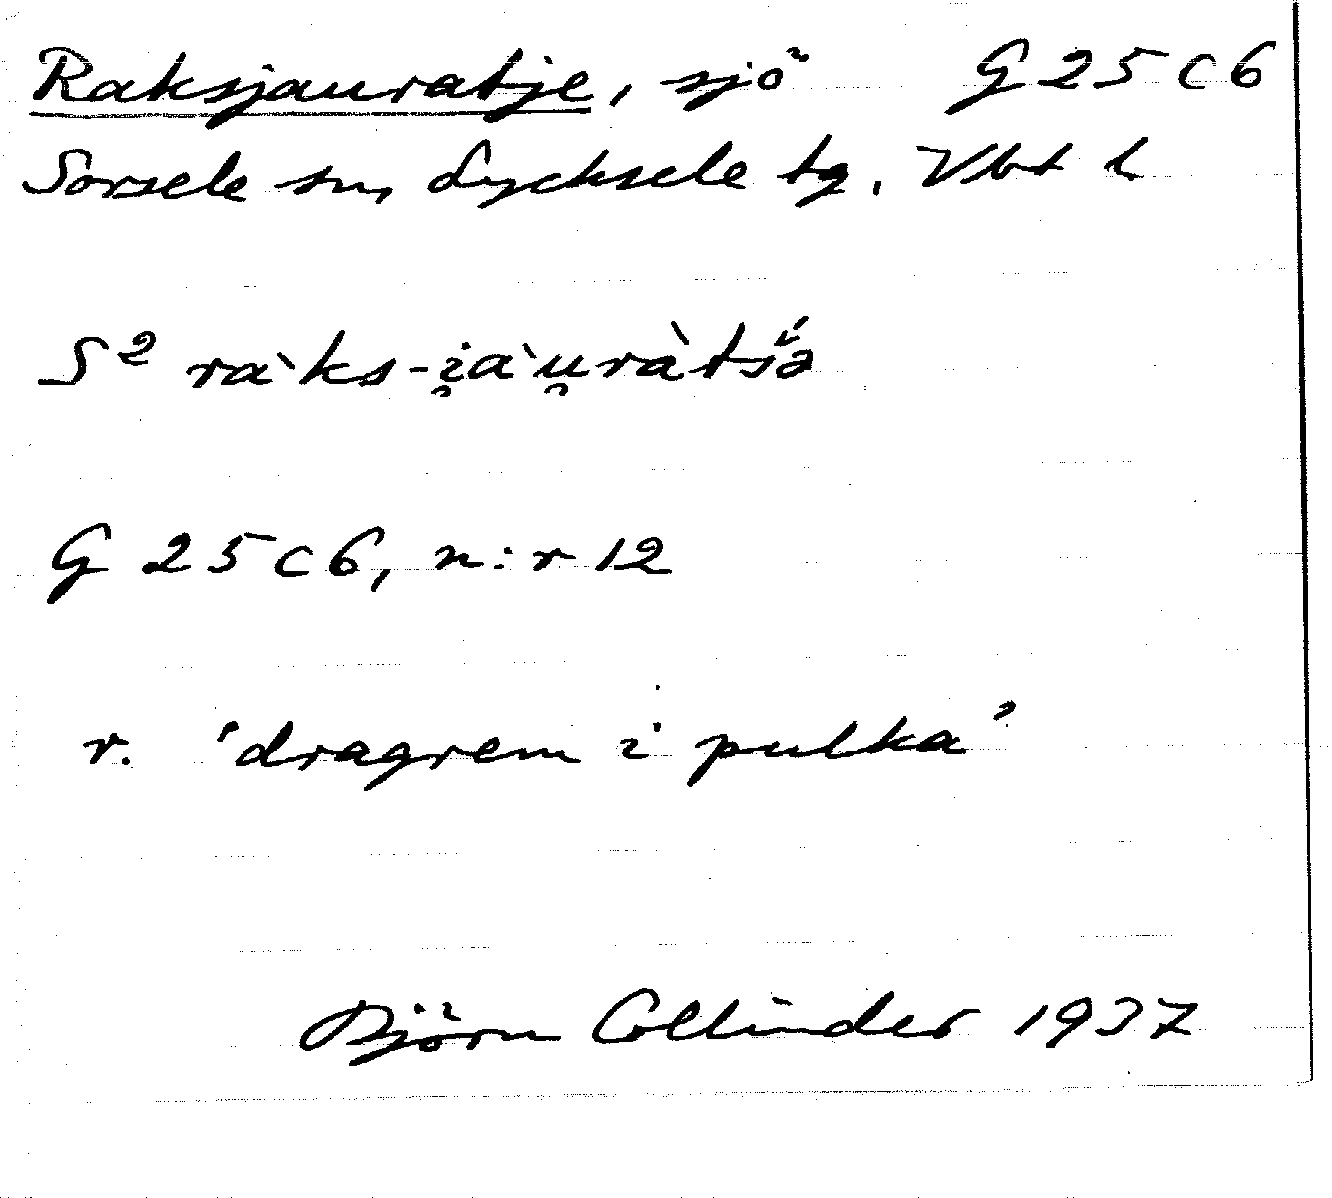 Raksjauratje, sjö G 25 C 6
Sorsele sn, Lycksele tg. Vbt l
S² ràks-i̯àu̯ràtśə
G 25 C 6, n:r 12
r. 'dragrem i pulka'
Björn Collinder 1937